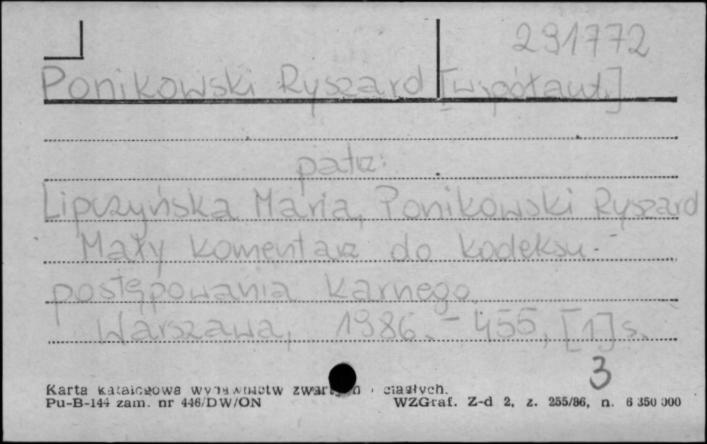 291772
Ponikowski Ryszard [współaut.]
patrz:
Lipczyńska Maria, Ponikowski Ryszard
Mały komentarz do kodeksu
postępowania karnego.
Warszawa, 1986. - 455, [1] s.
3
Karta katalogowa wydawnictw zwartych i ciągłych.
Pu-B-144 zam. nr 446/DW/ON WZGraf. Z-d 2, z. 255/86, n. 6 350 000